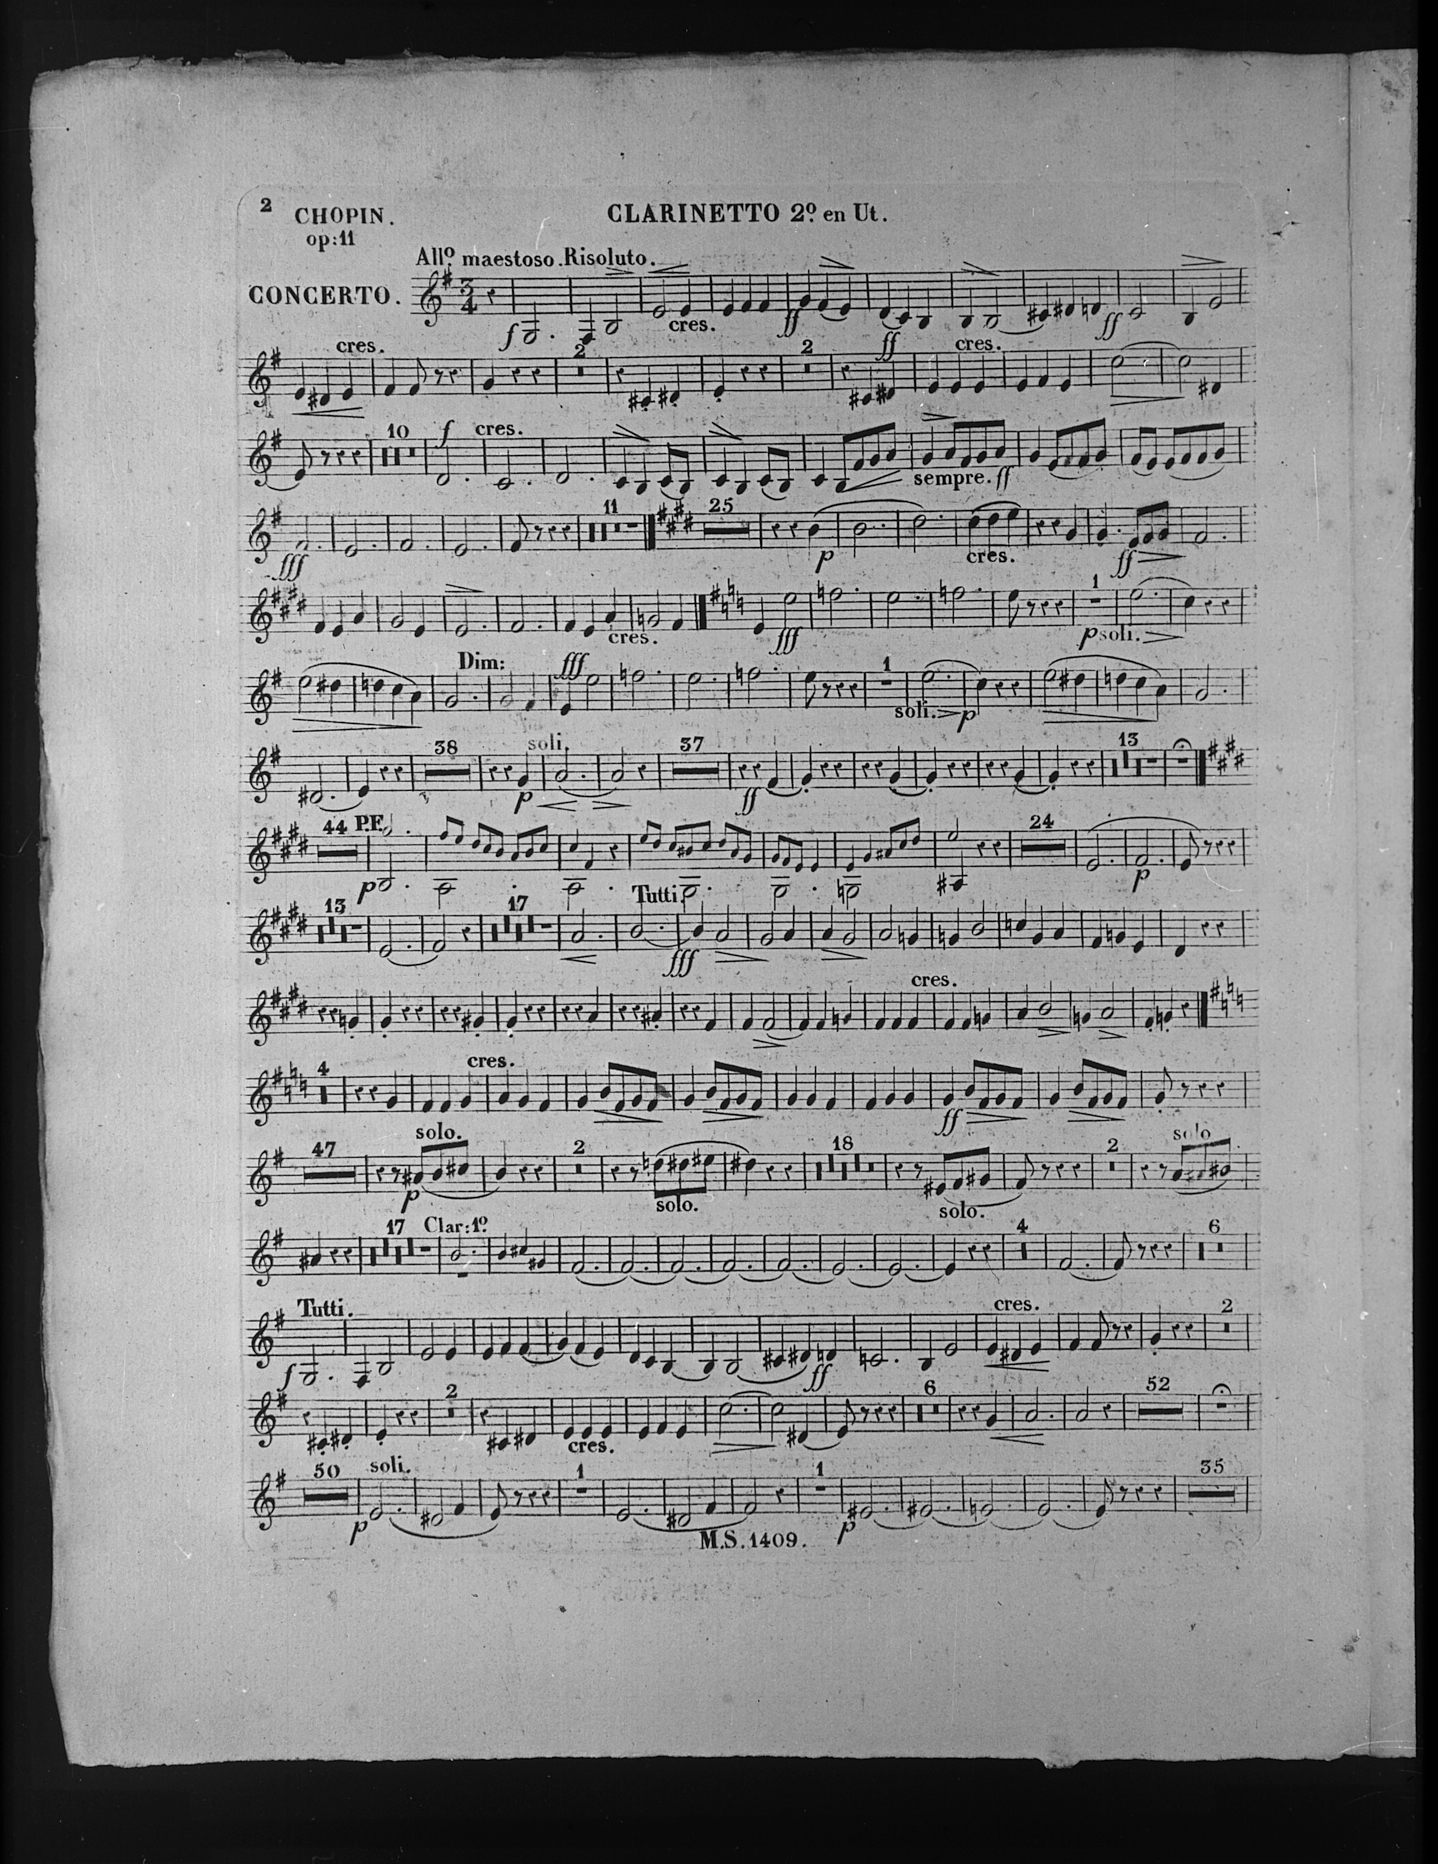 2 CHOPIN. CLARINETTO 2º en Ut.
op:11
Allº maestoso. Risoluto.
CONCERTO. 3/4 f cres. ff ff ff
cres. 2 2 cres.
10 f cres. sempre. ff
fff 11 25 p cres. ff
cres. fff 1 p soli.
Dim: fff 1 soli. p
38 soli. p 37 ff 13
44 P.F. p 24 p
Tutti.
13 17 fff
cres.
4 cres. ff
47 solo. p 2 solo. 18 solo. 2 solo
17 Clar:1º 4 6
Tutti. f ff cres. 2
2 cres. 6 52
50 soli. p 1 1 p 35
M.S. 1409.